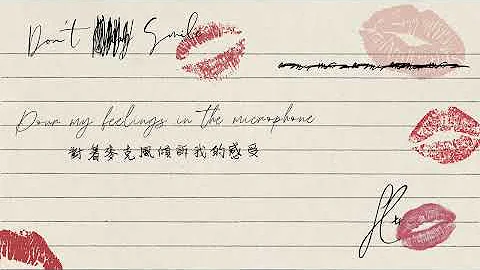 Don't Smile
Pour my feelings in the microphone
對著麥克風傾訴我的感受